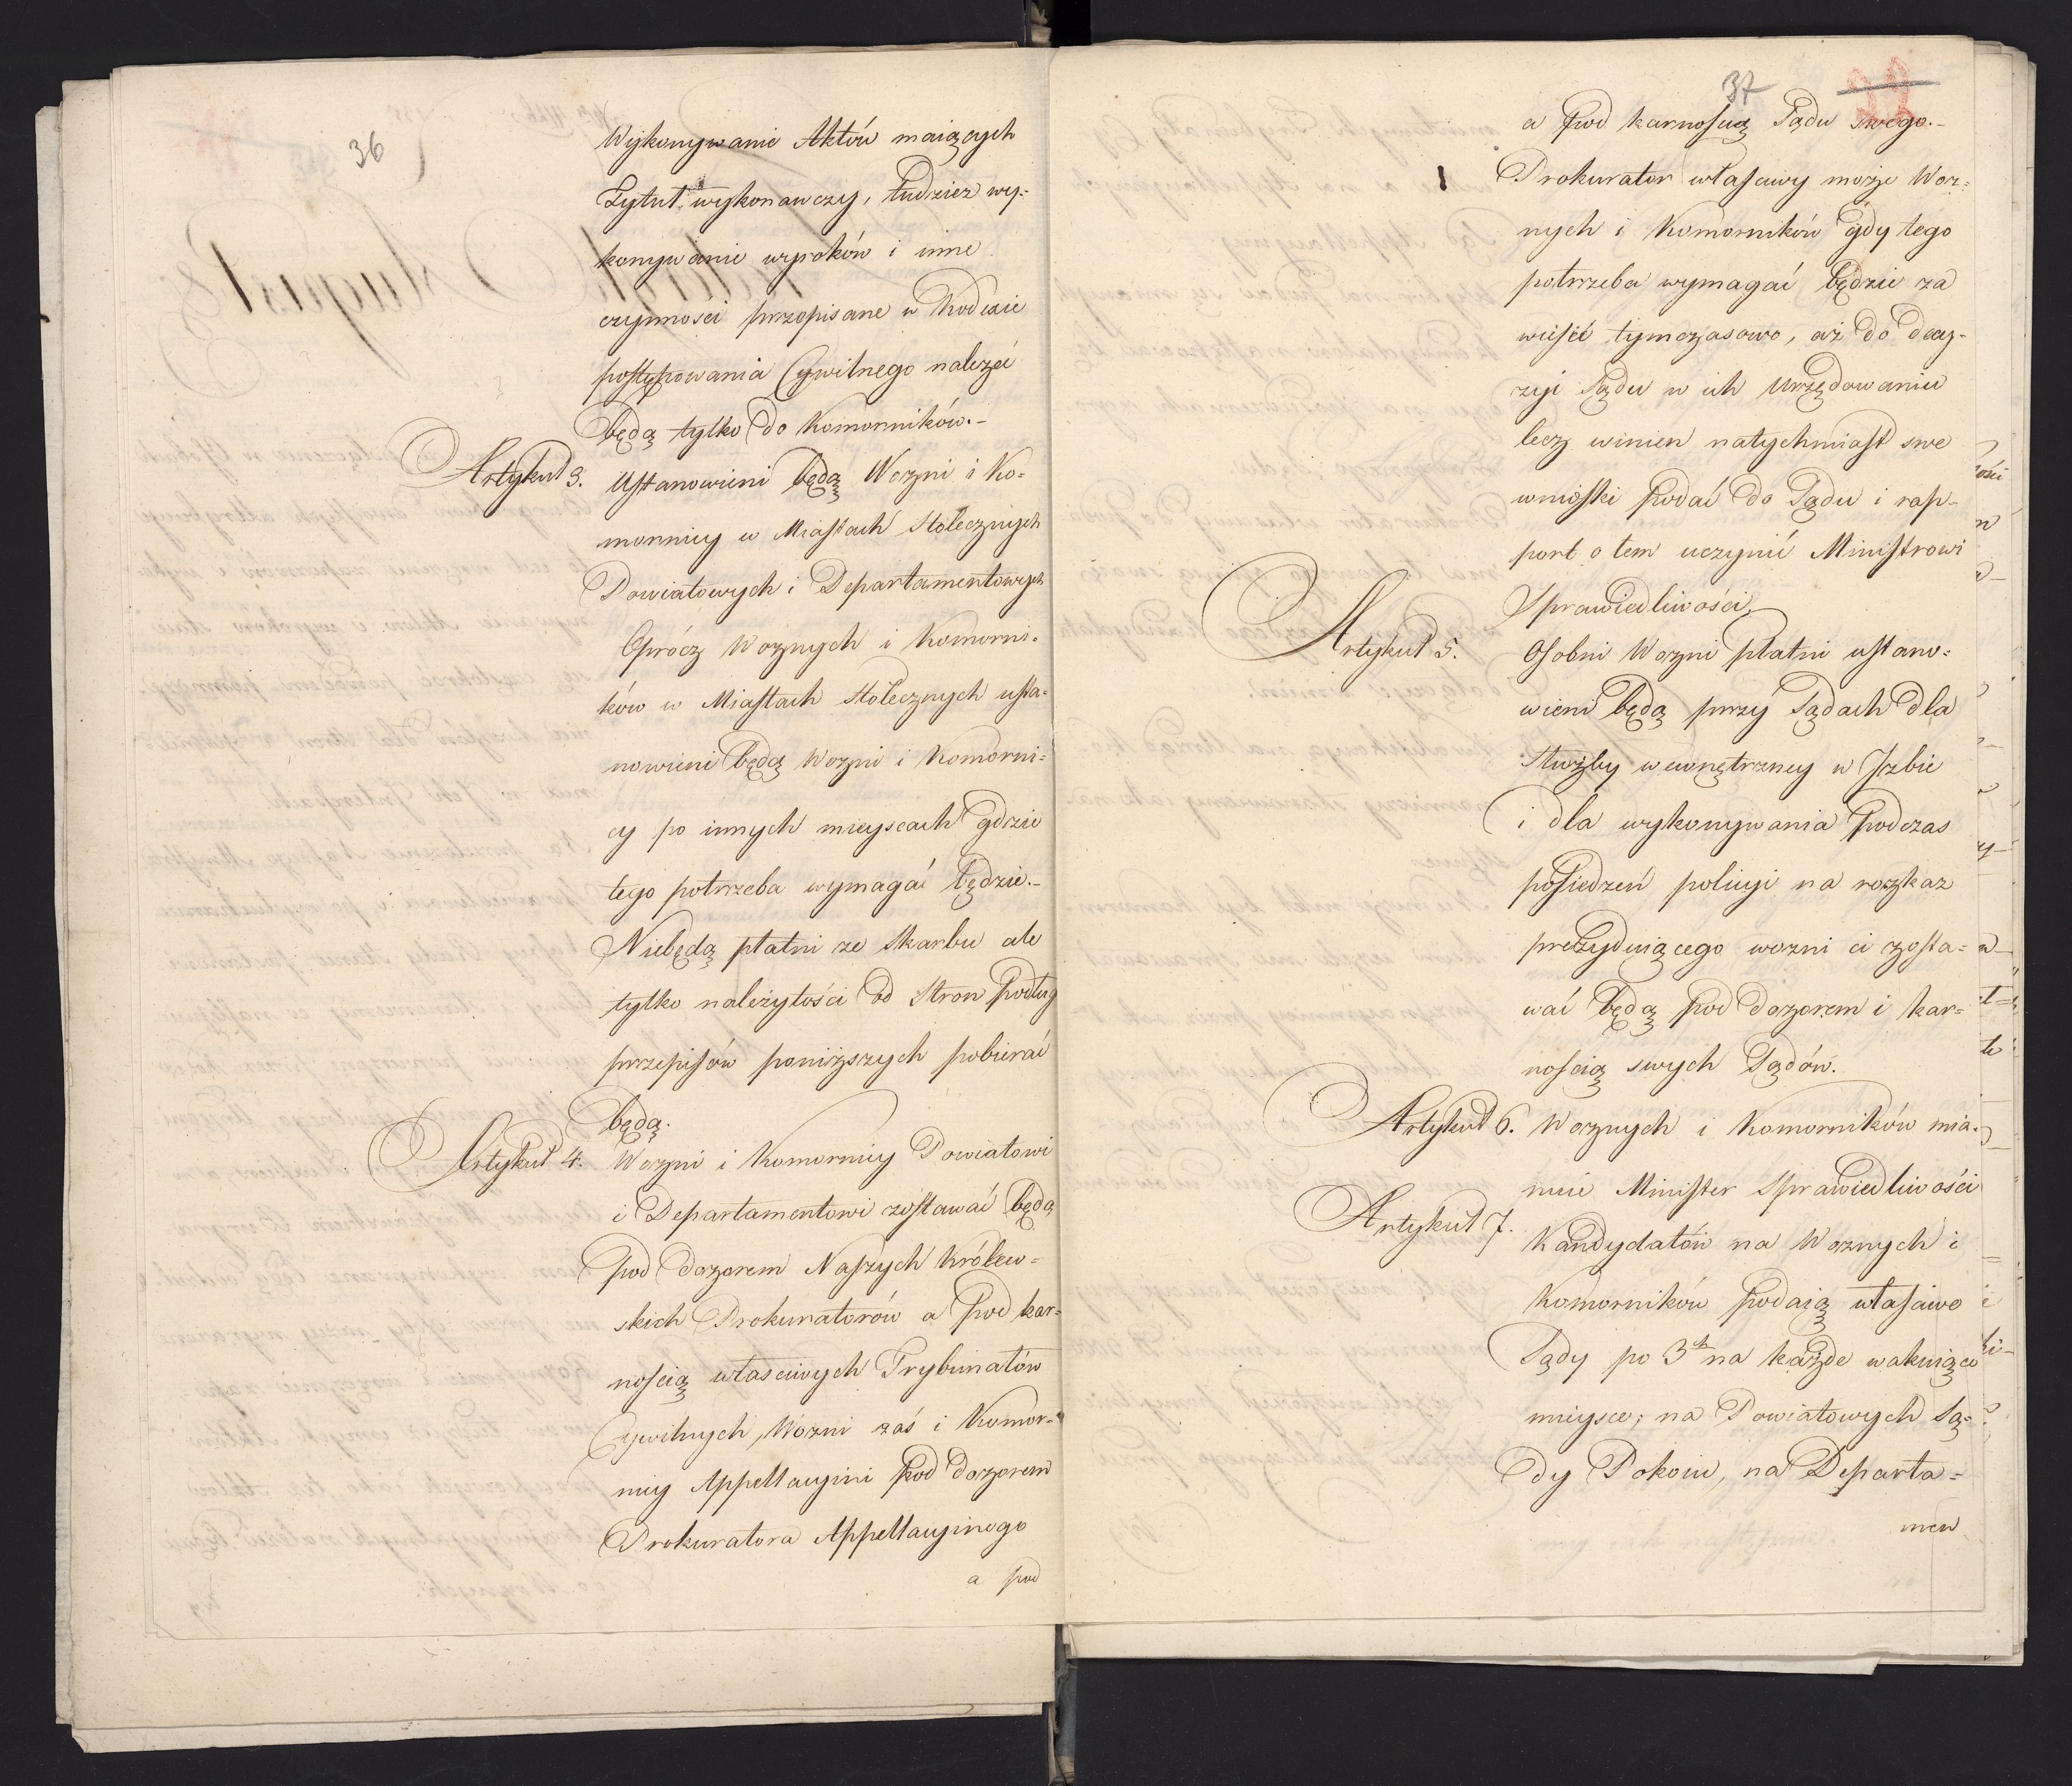 36
Wykonywanie Aktów maiących
Tytuł wykonawczy, tudzież wy-
konywanie wyroków i inne
czynności przepisane w Kodexie
postępowania Cywilnego należeć
będą tylko do Komorników.-
Artykuł 3. Ustanowieni będą Wozni i Ko-
mornicy w Miastach Stołecznych
Powiatowych i Departamentowych
Oprócz Woznych i Komorni-
ków w Miastach Stołecznych usta-
nowieni będą Wozni i Komorni-
cy po innych mieyscach gdzie
tego potrzeba wymagać będzie.-
Niebędą płatni ze Skarbu ale
tylko należytości od Stron podług
przepisów poniższych pobierać
będą.
Artykuł 4. Wozni i Komornicy Powiatowi
i Departamentowi zostawać będą
pod dozorem Naszych Królew-
skich Prokuratorów a pod kar-
nością własciwych Trybunałów
Cywilnych, Wozni zaś i Komor-
nicy Appellacyini pod dozorem
Prokuratora Appellacyinego
a pod
37
a pod karnością Sądu swego.-
Prokurator własciwy może Woz-
nych i Komorników gdy tego
potrzeba wymagać będzie za
wiesić tymczasowo, aż do decy-
zyi Sądu w ich Urzędowaniu
lecz winien natychmiast swe
wnioski podać do Sądu i rap-
port o tem uczynić Ministrowi
Sprawiedliwości.
Artykuł 5. Osobni Wozni płatni ustano-
wieni będą przy Sądach dla
służby wewnętrzney w Izbie
i dla wykonywania podczas
posiedzeń policyi na rozkaz
prezyduiącego wozni ci zosta-
wać będą pod dozorem i kar-
nością swych Sądów.
Artykuł 6. Woznych i Komorników mia-
nuie Minister Sprawiedliwości
Artykuł 7. Kandydatów na Woznych i
Komorników podaią własciwe
Sądy po 3ch na każde wakuiące
mieysce; na Powiatowych Są-
dy Pokoiu, na Departa-
men